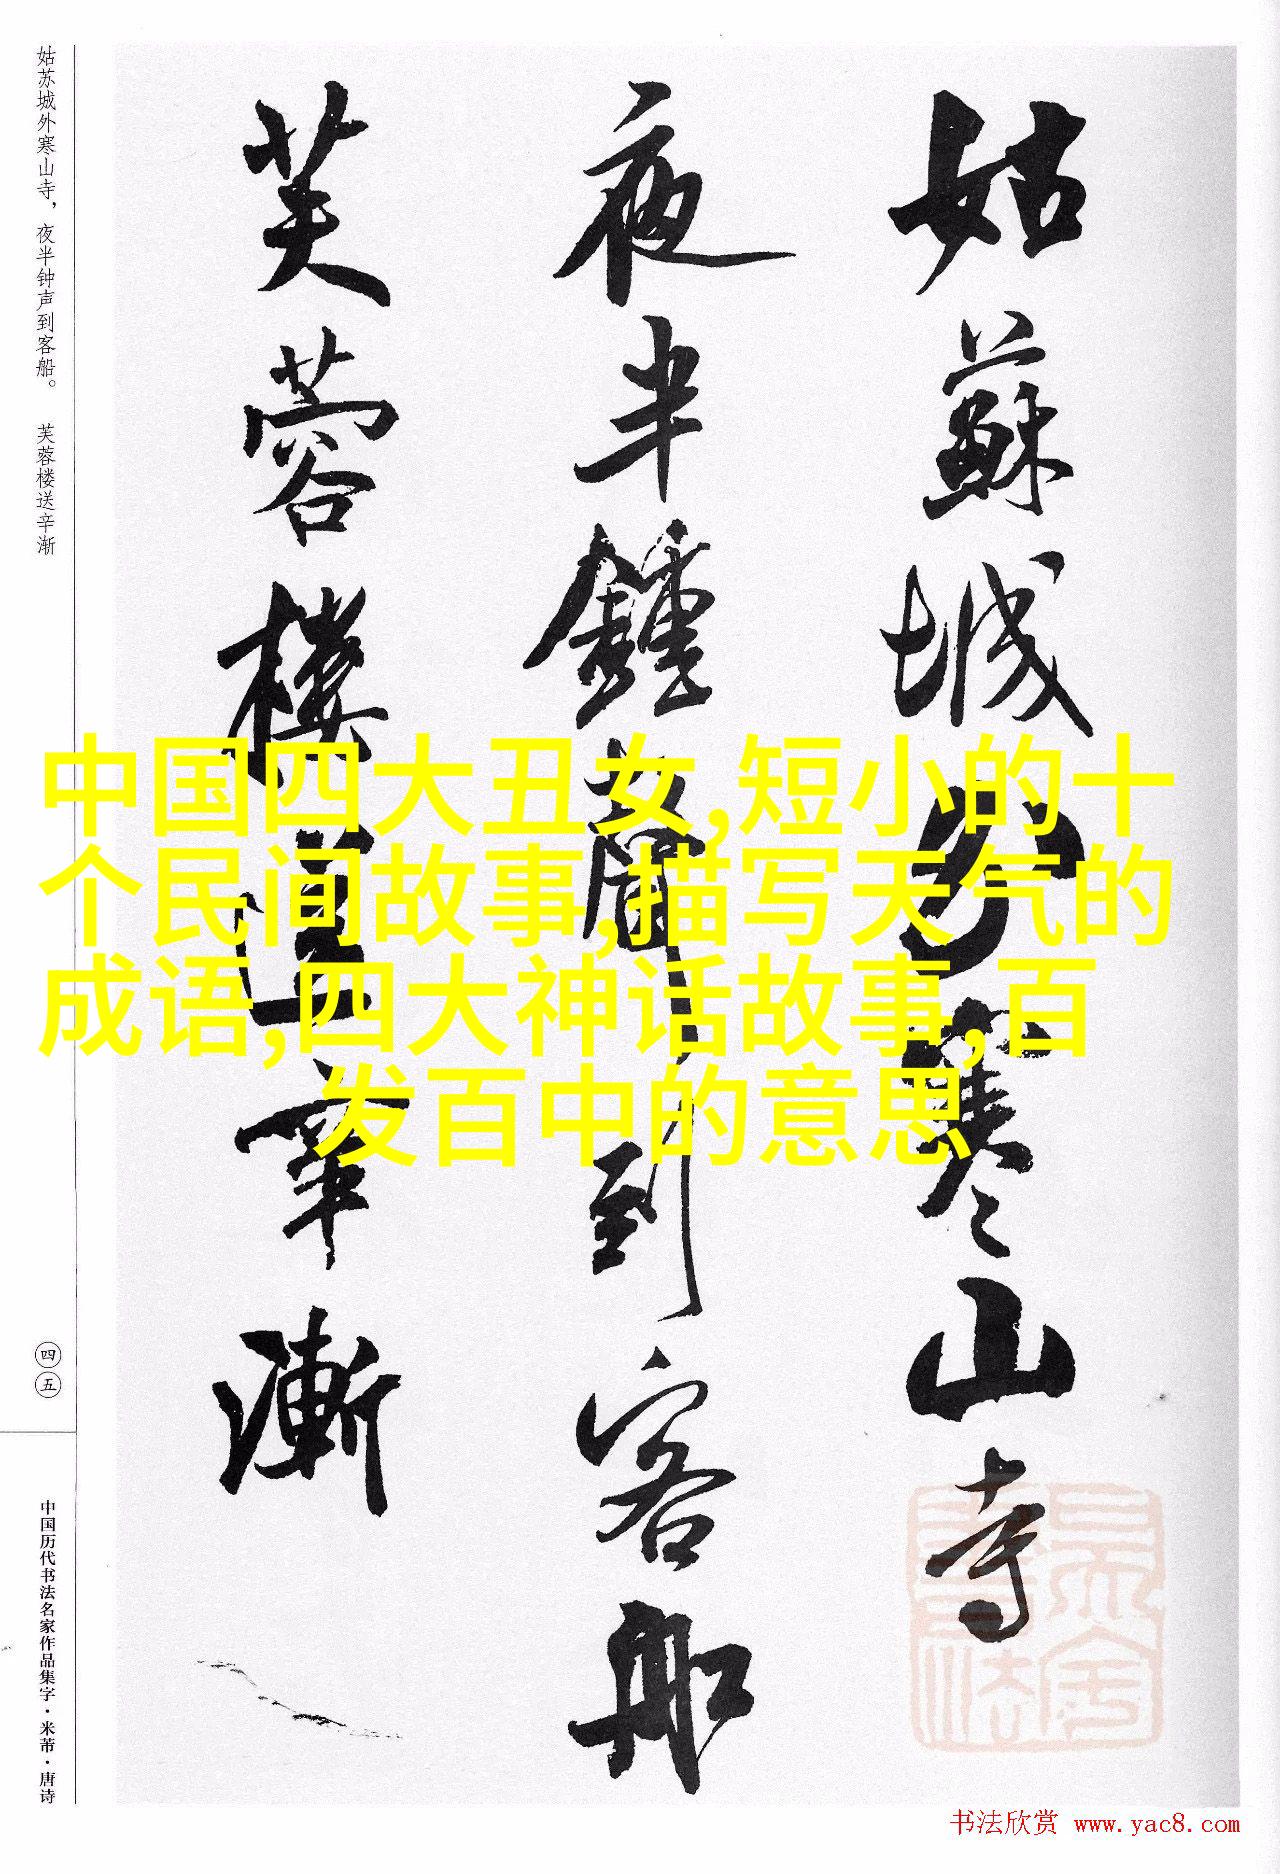 姑苏城外寒山寺，夜半钟声到客船。 芙蓉楼送辛渐
姑蘇城外寒山寺
夜半鐘聲到客船
芙蓉樓送辛漸
中国四大丑女,短小的十
个民间故事,描写天气的
成语,四大神话故事,百
发百中的意思
四五
中国历代书法名家作品集字·米芾·唐诗
书法欣赏 www.yac8.com